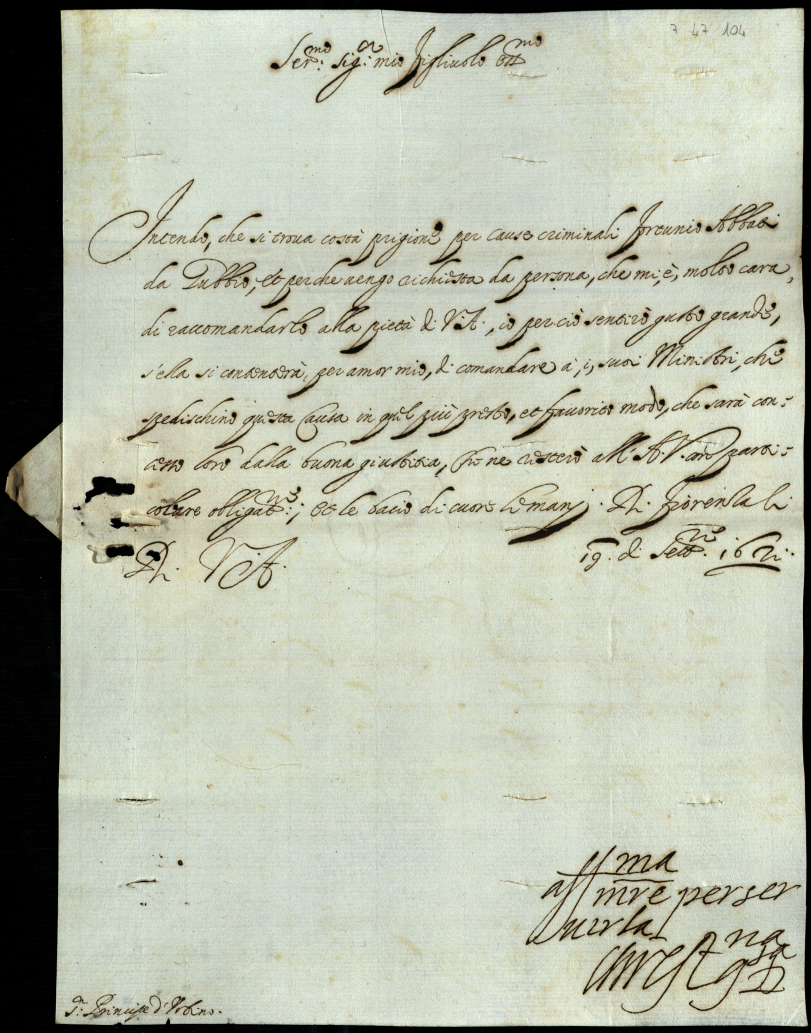 7 47 104
Ser.mo Sig.r mio Figliuolo oss.mo
Intendo, che si troua costà prigione per cause criminali Fortunio Abbati
da Gubbio, et perche uengo richiesta da persona, che mi, è, molto cara,
di raccomandarlo alla pietà di V.A., io perciò sentirò gusto grande,
s'ella si contenterà, per amor mio, di comandare à, i, suoi Ministri, che
spedischino questa Causa in quel più presto, et fauorito modo, che sarà con=
cesso loro dalla buona giustitia, che ne resterò all'A.V. con parti=
colare obligat.ne; et le bacio di cuore le mani. Di Fiorenza li
19. di Sett.re 1621.
Di V.A.
aff.ma mre per ser
uirla
Christ.na gsa D
S.r Principe d'Vrbino.